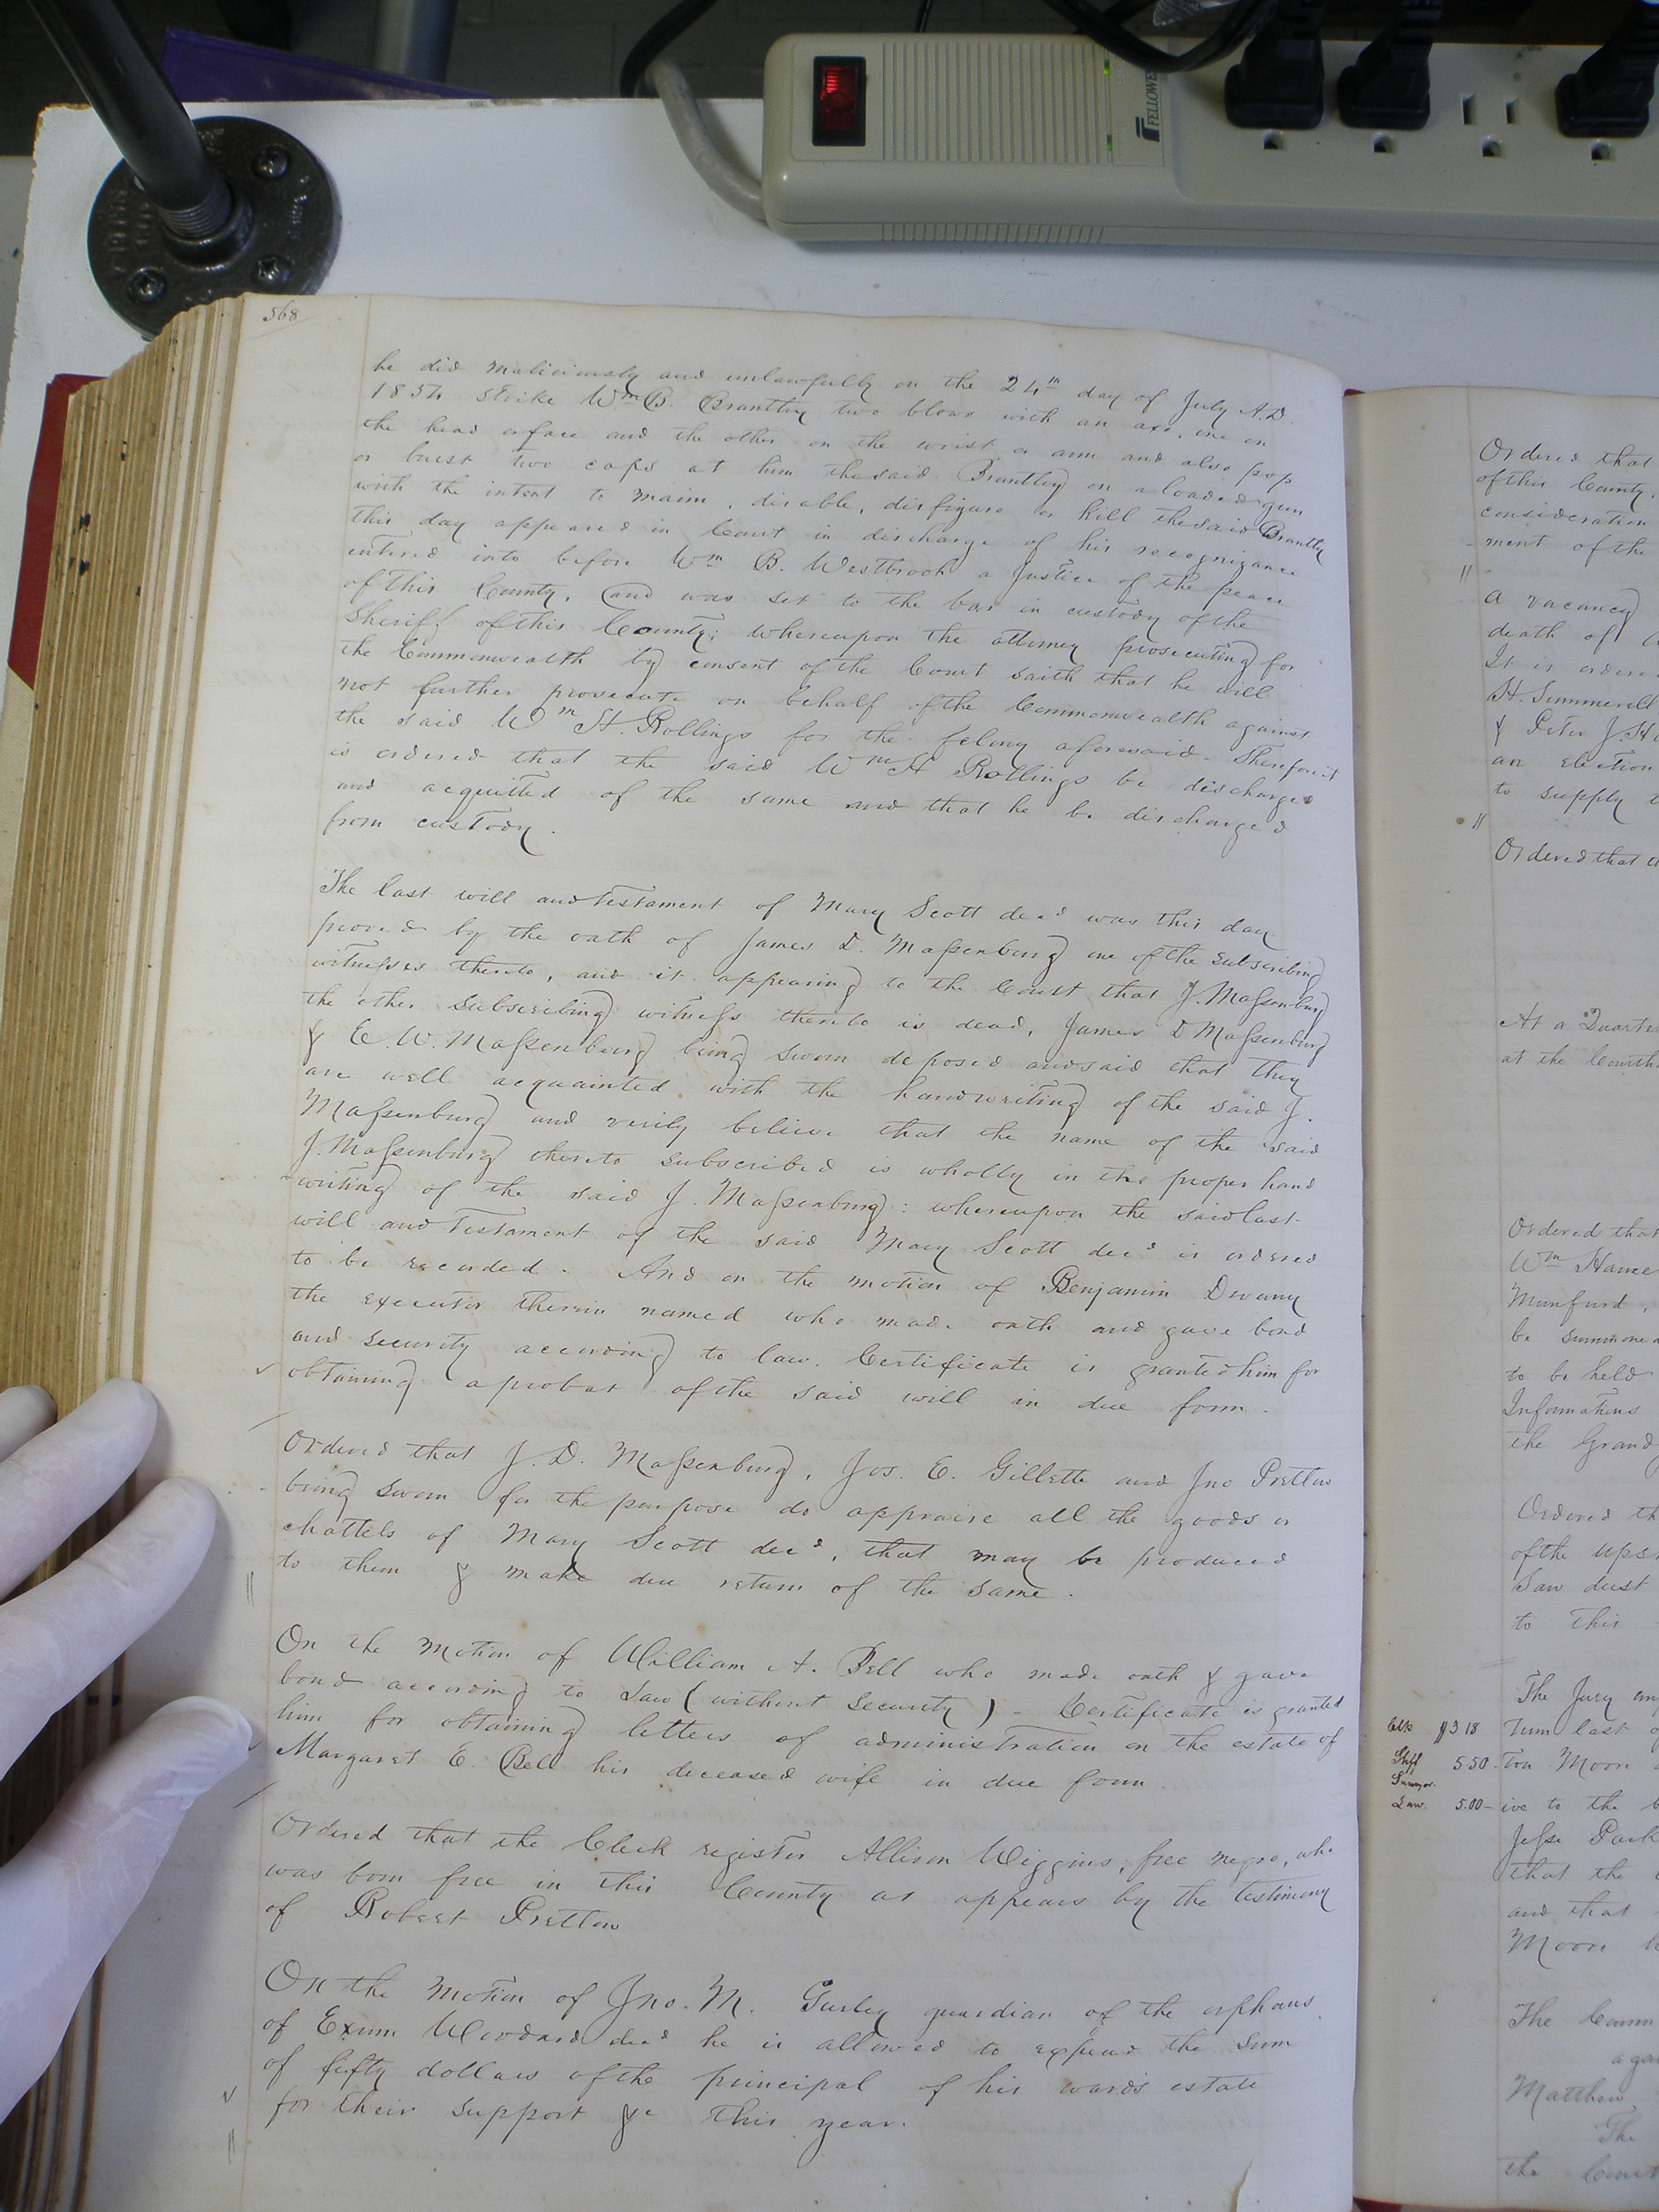 FELLOWES
568
he did maliciously and unlawfully on the 24th day of July A.D.
1854 strike Wm B. Brantley two blows with an axe, one on
the head or face and the other on the wrist or arm and also pop
or burst two caps at him the said Brantley on a loaded gun
with the intent to maim, disable, disfigure or kill the said Brantley
this day appeared in Court in discharge of his recognizance
entered into before Wm B. Westbrook a Justice of the peace
of this County, and was set to the bar in custody of the
Sheriff of this County; whereupon the attorney prosecuting for
the Commonwealth by consent of the Court saith that he will
not further prosecute on behalf of the Commonwealth against
the said Wm H. Rollings for the felony aforesaid. Therefore it
is ordered that the said Wm H Rollings be discharged
and acquitted of the same and that he be discharged
from custody.
The last will and testament of Mary Scott decd was this day
proved by the oath of James D. Massenburg one of the subscribing
witnesses thereto, and it appearing to the Court that J. Massenburg
the other subscribing witness thereto is dead, James D Massenburg
& E. W. Massenburg being sworn deposed and said that they
are well acquainted with the handwriting of the said J.
Massenburg and verily believe that the name of the said
J. Massenburg thereto subscribed is wholly in the proper hand
writing of the said J. Massenburg: whereupon the said last
will and testament of the said Mary Scott decd is ordered
to be recorded. And on the motion of Benjamin Devany
the executor therein named who made oath and gave bond
and security according to law. Certificate is granted him for
obtaining a probat of the said will in due form.
Ordered that J. D. Massenburg, Jos. E. Gillette and Jno Pretlow
being sworn for the purpose do appraise all the goods or
chattels of Mary Scott decd, that may be produced
to them & make due return of the same.
On the motion of William A. Bell who made oath & gave
bond according to law (without security) - Certificate is granted
him for obtaining letters of administration on the estate of
Margaret E. Bell his deceased wife in due form.
Ordered that the Clerk register Allison Wiggins, free negro, who
was born free in this County as appears by the testimony
of Robert Pretlow
On the motion of Jno. M. Gurley guardian of the orphans
of Exum Woodard decd he is allowed to expend the sum
of fifty dollars of the principal of his wards estate
for their support &c this year.
Ordered that
of this County,
consideration
ment of the
a vacancy
death of
It is ordere
H. Summerell
& Peter J. Ho
an election
to supply t
Ordered that a
At a Quarte
at the Courth
Ordered that
Wm Hance
Munford,
be summone
to be held
Informations
the Grand
Ordered th
of the ups
Saw dust
to this
The Jury em
Clk $3 18 Term last
Shff 5.50 ton Moore
Survyor.
Law. 5.00 ive to the
Jesse Park
that the
and that
Moore
The Comm
aga
Matthew
The
the Court